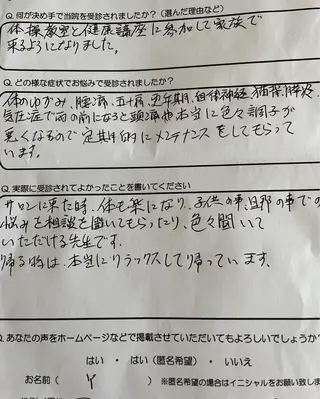 Q. 何が決め手で当院を受診されましたか？（選んだ理由など）
体操教室と健康講座に参加して家族で
来るようになりました。
Q. どの様な症状でお悩みで受診されましたか？
体のゆがみ、腰痛、五十肩、更年期、自律神経、猫背、膝
気圧症で雨の前になると頭痛や本当に色々調子が
悪くなるので定期的にメンテナンスをしてもらって
います。
Q. 実際に受診されてよかったことを書いてください
サロンに来た時、体も楽になり、子供の事、旦那の事での
悩みを相談を聞いてもらったり、色々聞いて
いただける先生です。
帰る時は、本当にリラックスして帰っています。
Q. あなたの声をホームページなどで掲載させていただいてもよろしいでしょうか？
はい ・ はい（匿名希望） ・ いいえ
お名前（ Y ） ※匿名希望の場合はイニシャルをお願い致しま